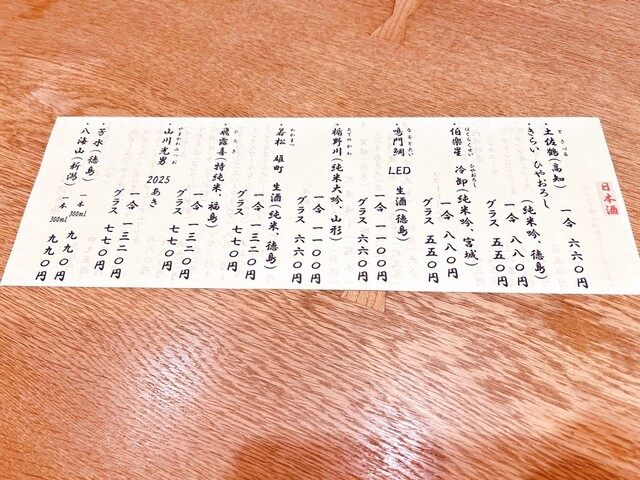 日本酒
・土佐鶴(高知)
とさつる
一合 六六〇円
・きらい ひやおろし
(純米吟、徳島)
一合 八八〇円
グラス 五五〇円
・伯楽星 冷卸(純米吟、宮城)
はくらくせい ひやおろし
一合 八八〇円
グラス 五五〇円
・鳴門鯛 LED 生酒(徳島)
なるとたい
一合 一一〇〇円
グラス 六六〇円
・楯野川(純米大吟、山形)
たてのかわ
一合 一一〇〇円
グラス 六六〇円
・若松 雄町 生酒(純米、徳島)
わかまつ
一合 一三二〇円
グラス 七七〇円
・飛露喜(特純米、福島)
ひろき
一合 一三二〇円
グラス 七七〇円
・山川光男 2025 あき
やまかわみつお
一合 一三二〇円
グラス 七七〇円
・芳水(徳島)
一本 300ml 九九〇円
・八海山(新潟)
一本 300ml 九九〇円